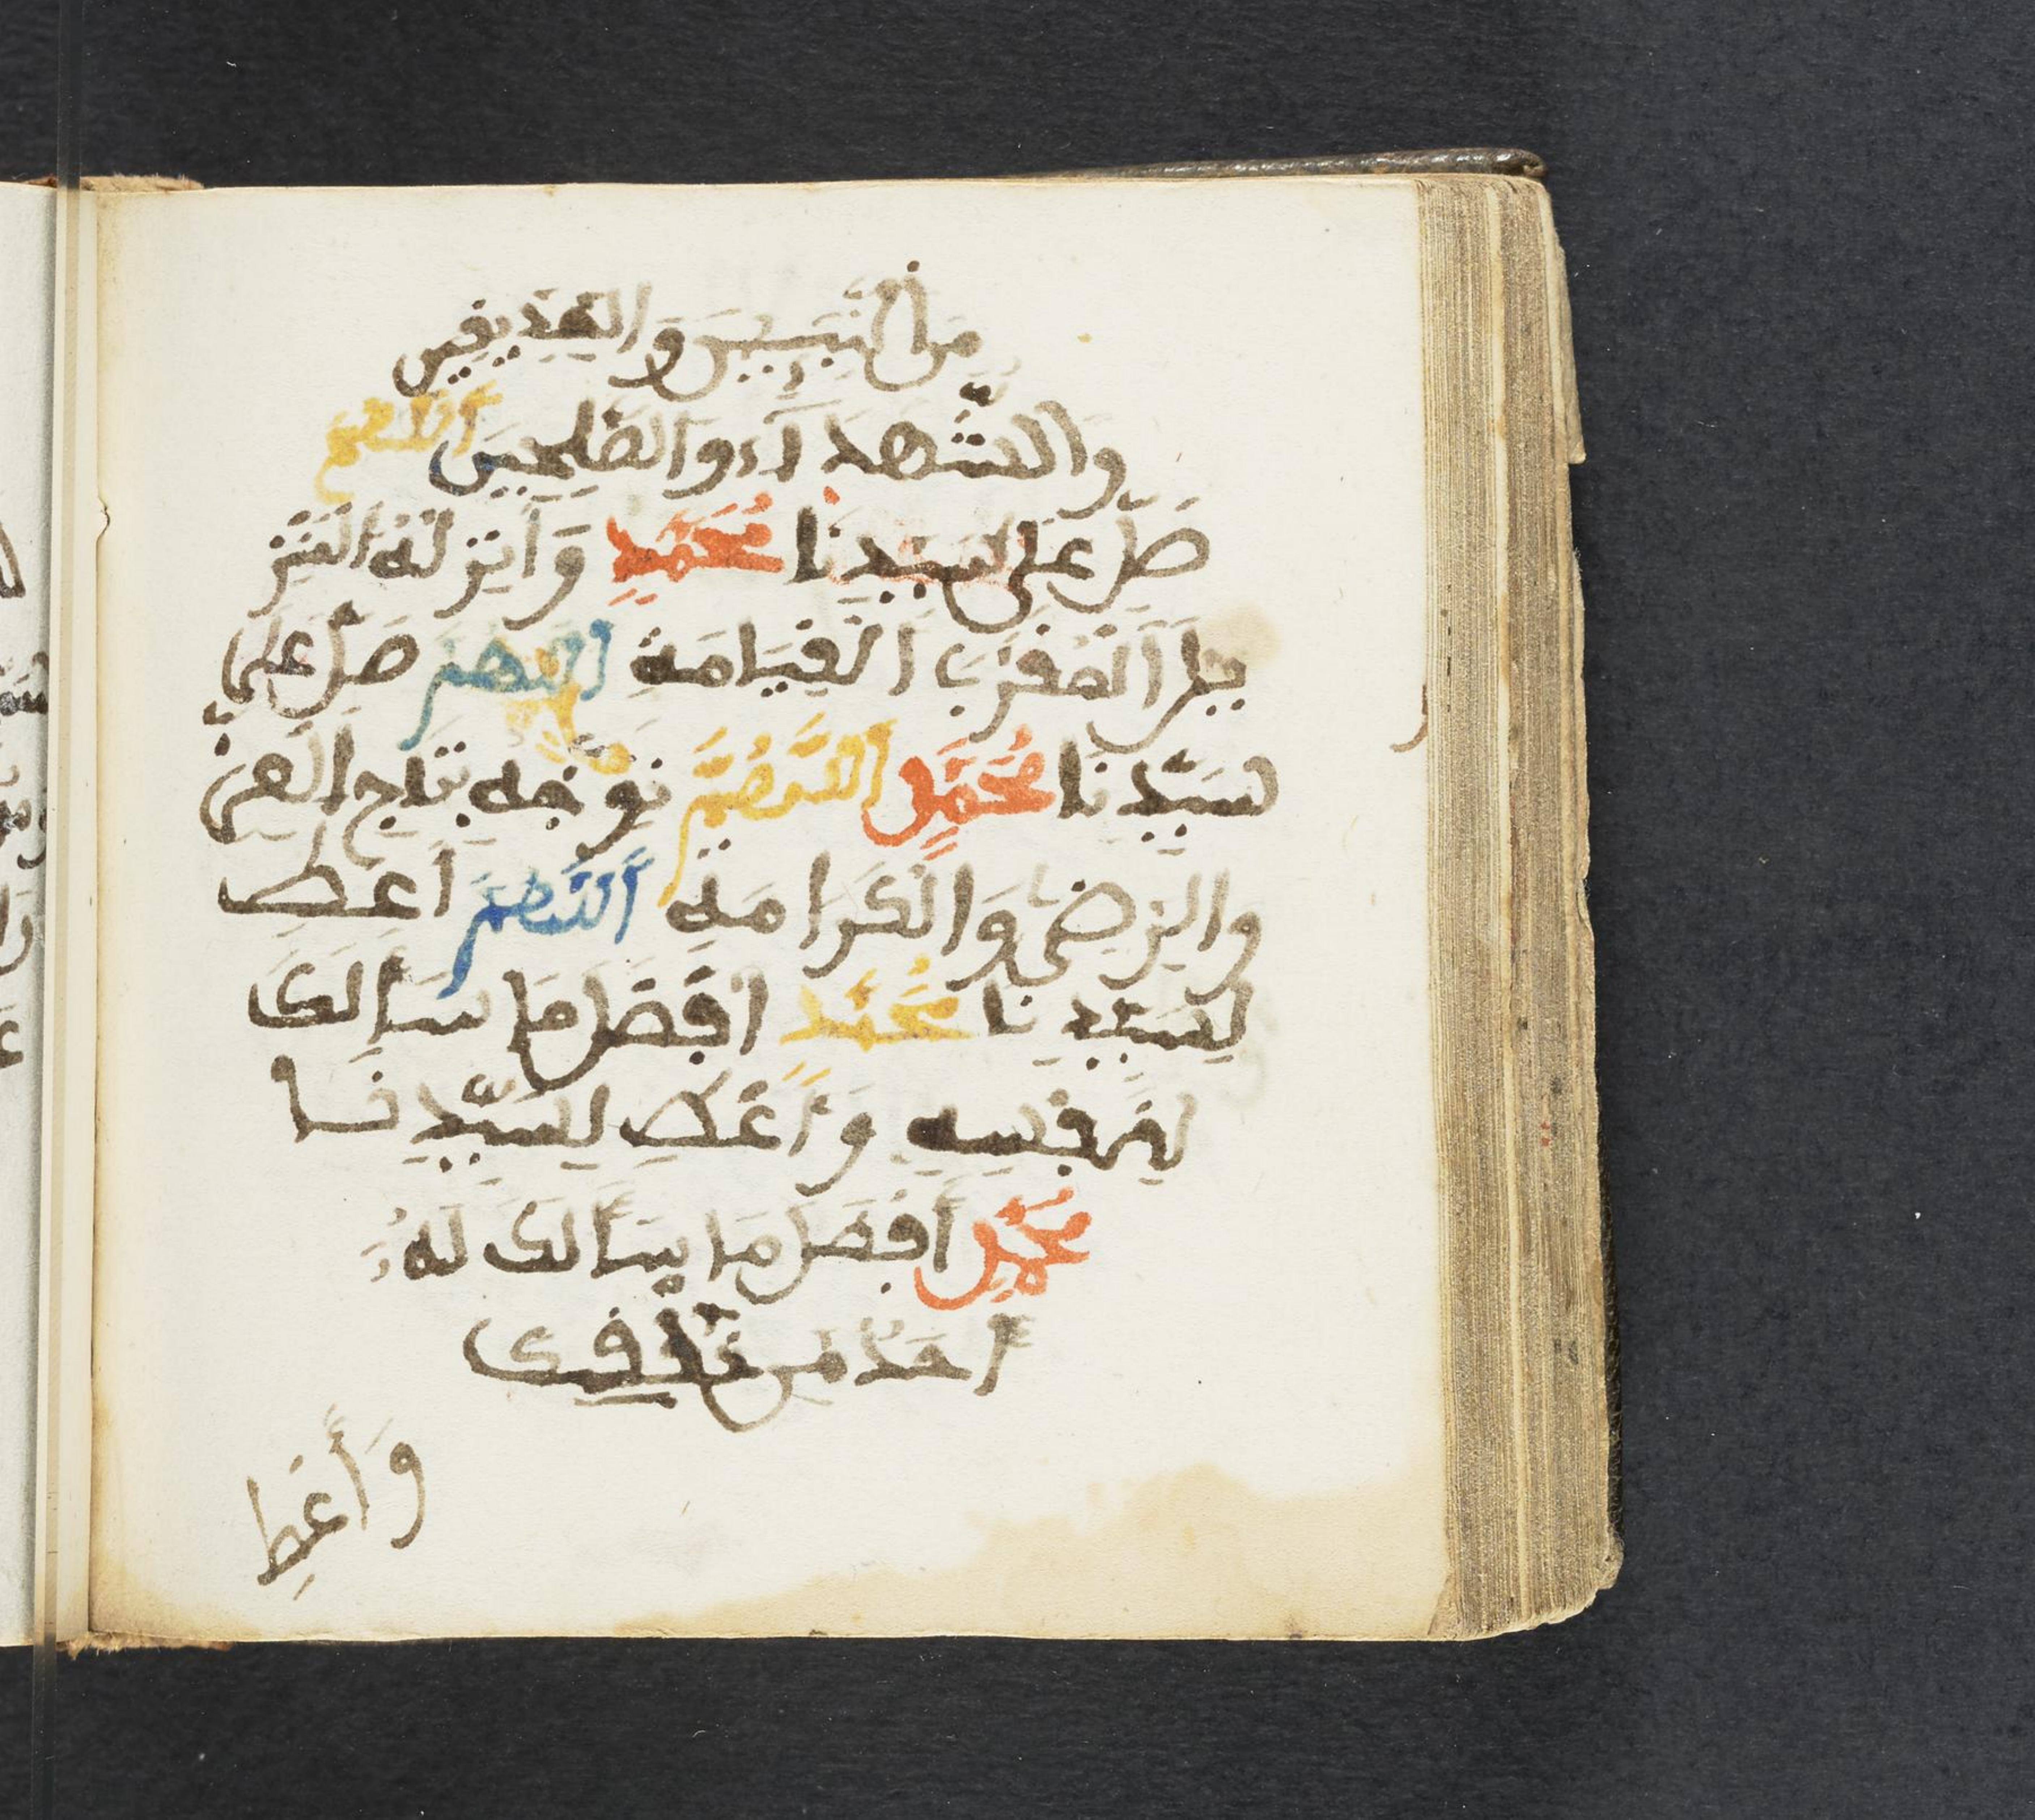 مِنَ النَّبِيـِٕينَ وَالصِّدِّيقِينَ
وَالشُّهَدَآءِ وَالصَّٰلِحِينَ اَللَّهُمَّ
صَلِّ عَلَى سَيِّدِنَا مُحَمَّدٍ وَاَنْزِلْهُ الْمَنْزِ
لَ الْمُقَرَّبَ الْقِيَامَةِ اَللَّهُمَّ صَلِّ عَلَى
سَيِّدِنَا مُحَمَّدٍ اَللَّهُمَّ تَوِّجْهُ بِتَاجِ الْعِزِّ
وَالرِّضَى وَالْكَرَامَةِ اَللَّهُمَّ اَعْطِ
لِسَيِّدِنَا مُحَمَّدٍ اَفْضَلَ مَا سَأَلَكَ
لِنَفْسِهِ وَاَعْطِ لِسَيِّدِنَا
مُحَمَّدٍ أَفْضَلَ مَا سَأَلَكَ لَهُ
أَحَدٌ مِّنْ خَلْقِكَ
وَأَعْطِ